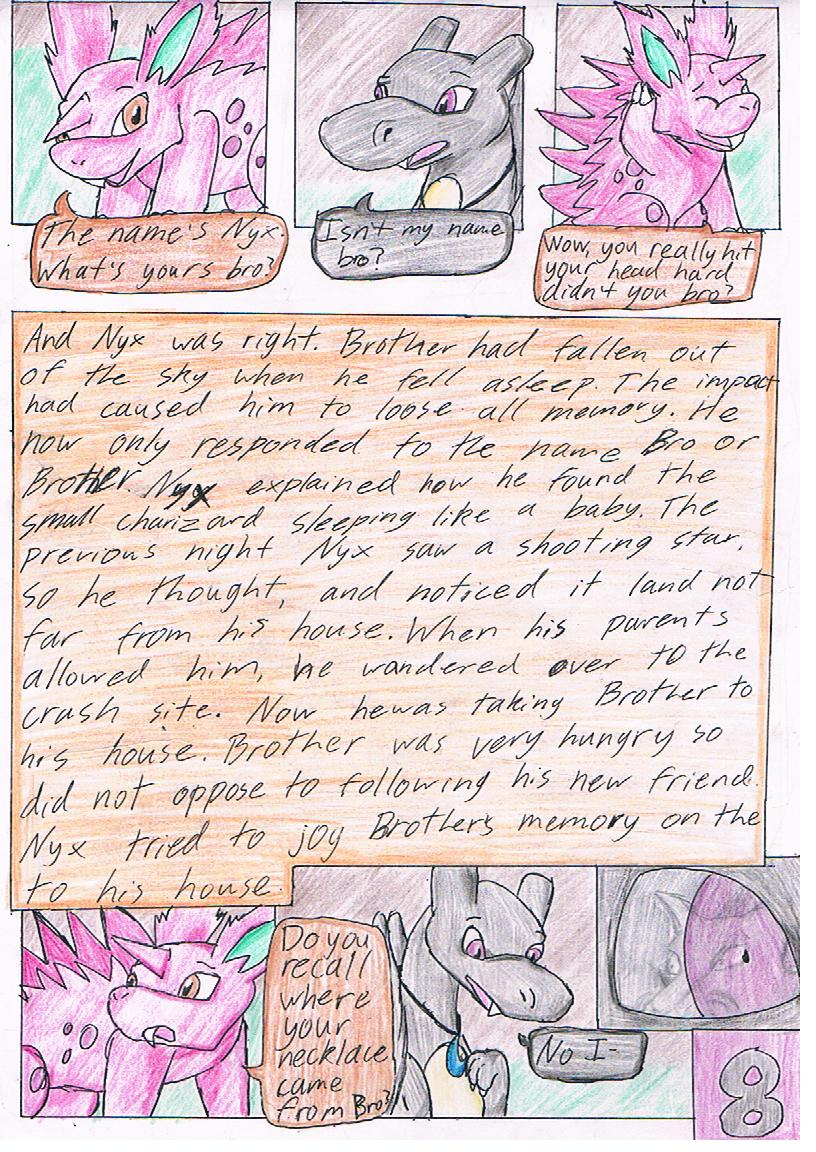 The name's Nyx
What's yours bro?
Isn't my name
bro?
Wow, you really hit
your head hard
didn't you bro?
And Nyx was right. Brother had fallen out
of the sky when he fell asleep. The impact
had caused him to loose all memory. He
now only responded to the name Bro or
Brother. Nyx explained how he found the
small charizard sleeping like a baby. The
previous night Nyx saw a shooting star,
so he thought, and noticed it land not
far from his house. When his parents
allowed him, he wandered over to the
crash site. Now hewas taking Brother to
his house. Brother was very hungry so
did not oppose to following his new friend.
Nyx tried to joy Brothers memory on the
to his house.
Do you
recall
where
your
necklace
came
from Bro?
No I-
8